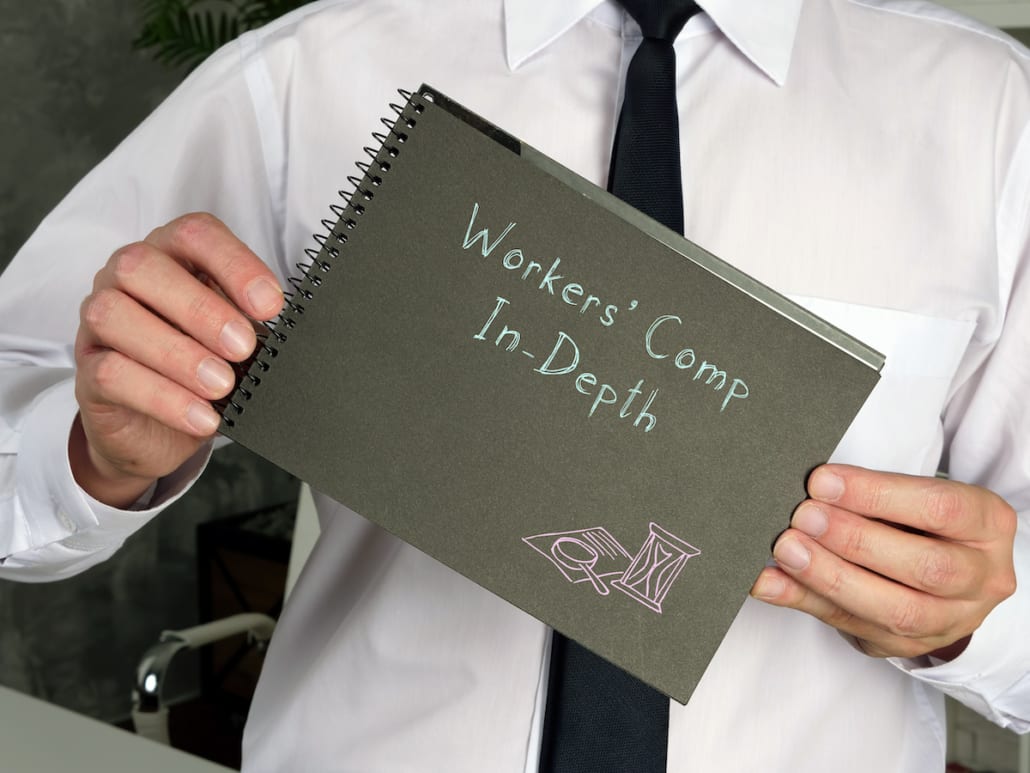 Workers' Comp
In-Depth